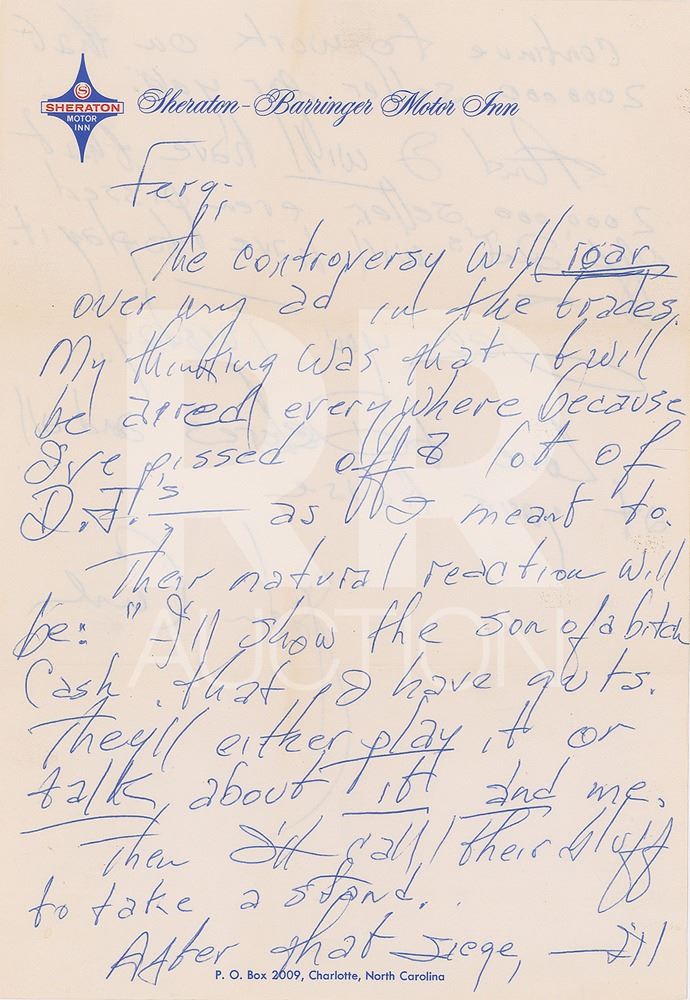 SHERATON
MOTOR
INN
Sheraton-Barringer Motor Inn
Ferg,
The controversy will roar
over my ad in the trades.
My thinking was that it will
be aired everywhere because
I've pissed off a lot of
D.J.'s as I meant to.
Their natural reaction will
be: "I'll show the son of a bitch
Cash that I have guts.
They'll either play it or
talk about it and me.
Then I'll call their bluff
to take a stand.
After that siege, I'll
P. O. Box 2009, Charlotte, North Carolina
RR
AUCTION